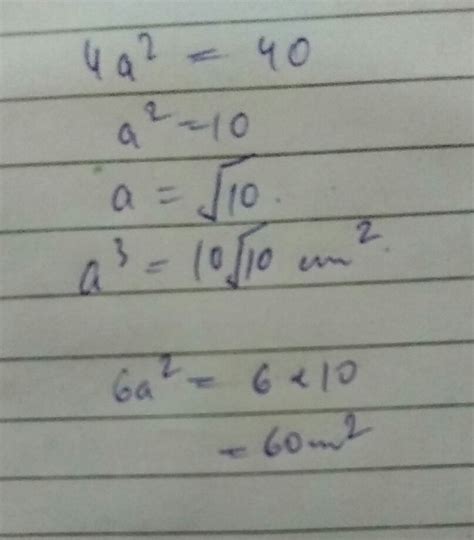 4a² = 40
a² = 10
a = √10.
a³ = 10√10 cm².
6a² = 6 × 10
= 60m²